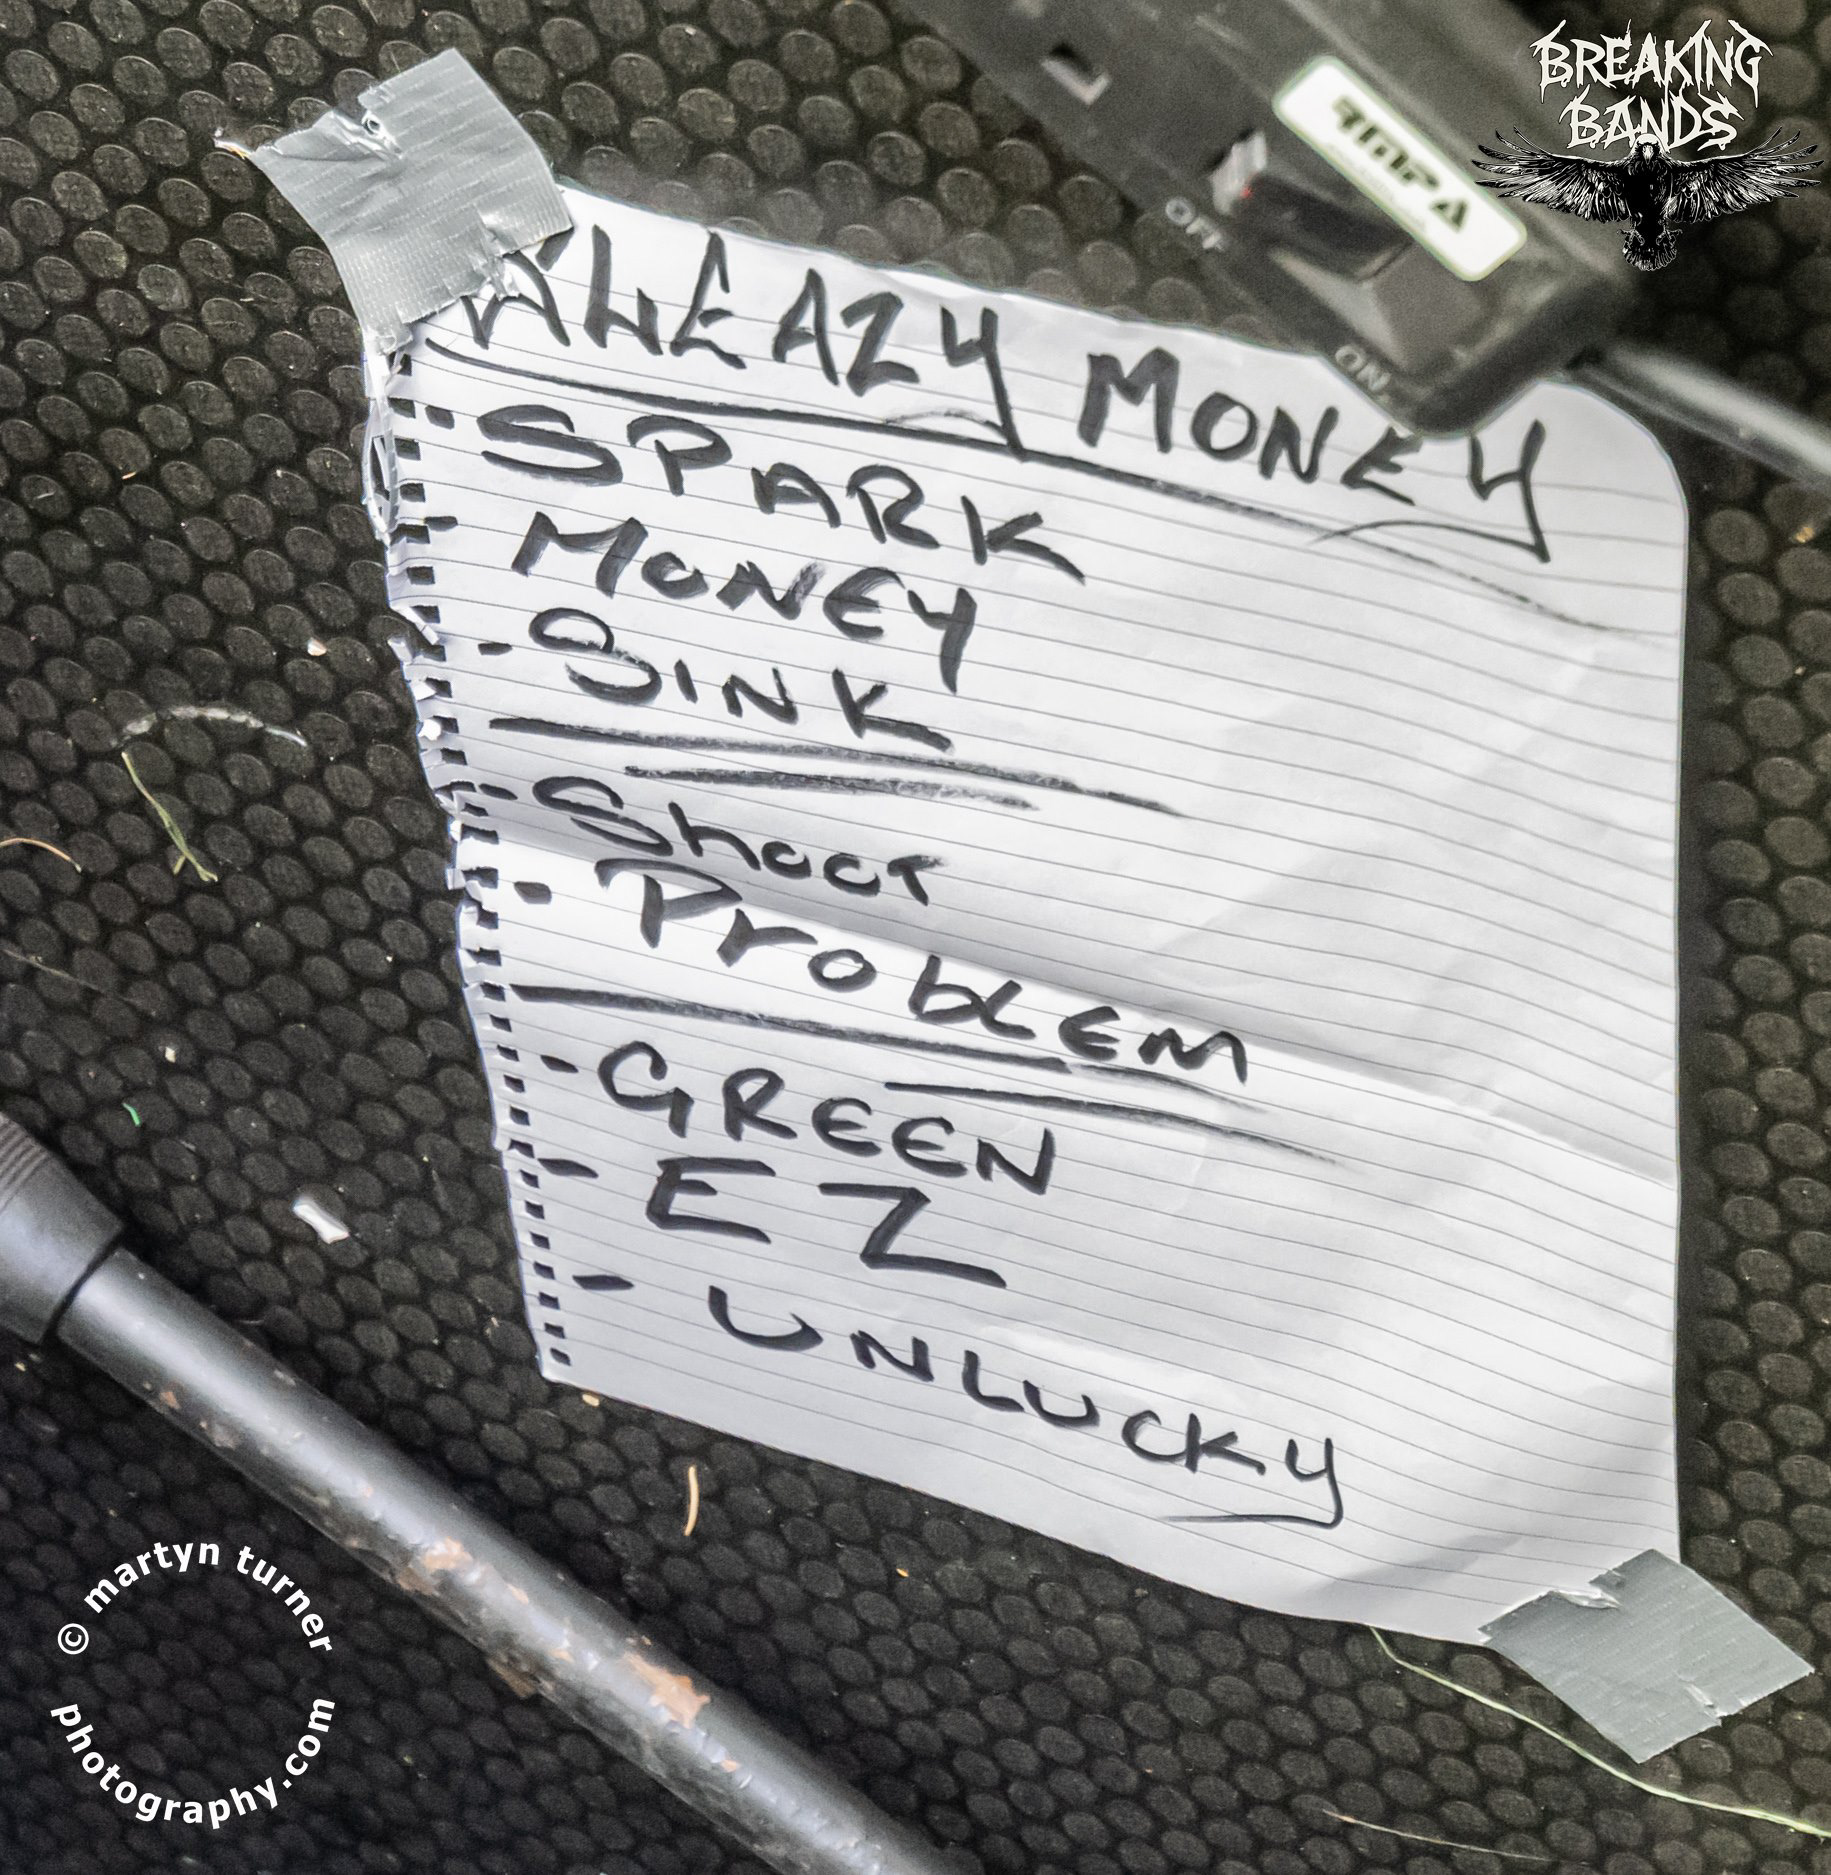 BREAKING
BANDS
OFF
ON
WHEAZY MONEY
- SPARK
- MONEY
- SINK
- Shoot
- Problem
- GREEN
- EZ
- UNLUCKY
© martyn turner
photography.com